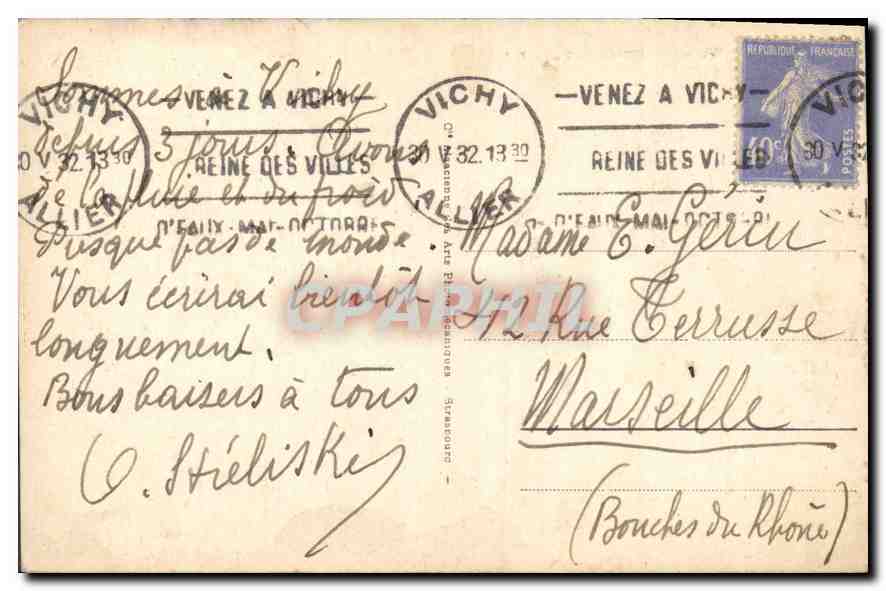 Sommes à Vichy
depuis 3 jours. Avons
de la pluie et du froid.
Presque pas de monde.
Vous écrirai bientôt
longuement.
Bons baisers à tous
VICHY
30 V 32.13 30
ALLIER
—VENEZ A VICHY—
REINE DES VILLES
D'EAUX-MAI-OCTOBRE
VICHY
30 V 32.13 30
ALLIER
—VENEZ A VICHY—
REINE DES VILLES
D'EAUX-MAI-OCTOBRE
RÉPUBLIQUE FRANÇAISE
40c
POSTES
VICHY
30 V 32
Cie Alsacienne des Arts Photomécaniques - Strasbourg -
Madame E. Gérin
42 Rue Terrusse
Marseille
(Bouches du Rhône)
CPARHIL